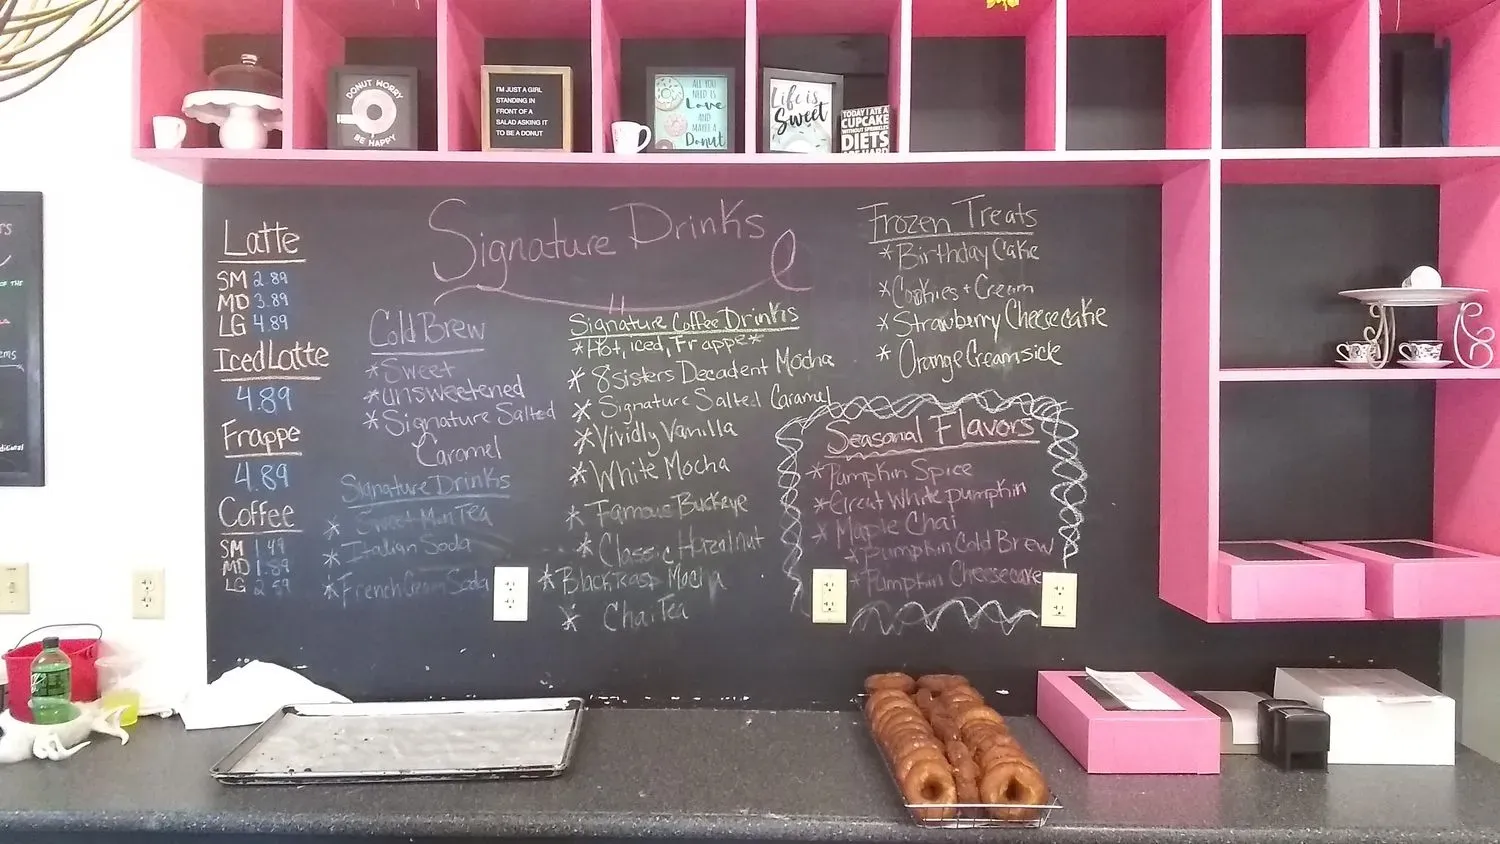 DONUT WORRY
BE HAPPY
I'M JUST A GIRL
STANDING IN
FRONT OF A
SALAD ASKING IT
TO BE A DONUT
ALL YOU
NEED IS
Love
AND
MAYBE A
Donut
Life is
Sweet
TODAY I ATE A
CUPCAKE
WITHOUT SPRINKLES
DIETS
ARE HARD
Latte
SM 2.89
MD 3.89
LG 4.89
Iced Latte
4.89
Frappe
4.89
Coffee
SM 1.49
MD 1.89
LG 2.59
Signature Drinks
Cold Brew
*Sweet
*unsweetened
*Signature Salted
Caramel
Signature Drinks
* Sweet Mint Tea
* Italian Soda
*French Cream Soda
Signature Coffee Drinks
*Hot, iced, Frappe*
* 8 sisters Decadent Mocha
* Signature Salted Caramel
*Vividly Vanilla
*White Mocha
* Famous Buckeye
* Classic Hazelnut
*Black Rasp Mocha
* Chai Tea
Frozen Treats
*Birthday Cake
*Cookies + Cream
*Strawberry Cheesecake
* Orange Creamsicle
Seasonal Flavors
*Pumpkin Spice
*Great White pumpkin
* Maple Chai
*Pumpkin Cold Brew
*Pumpkin Cheesecake